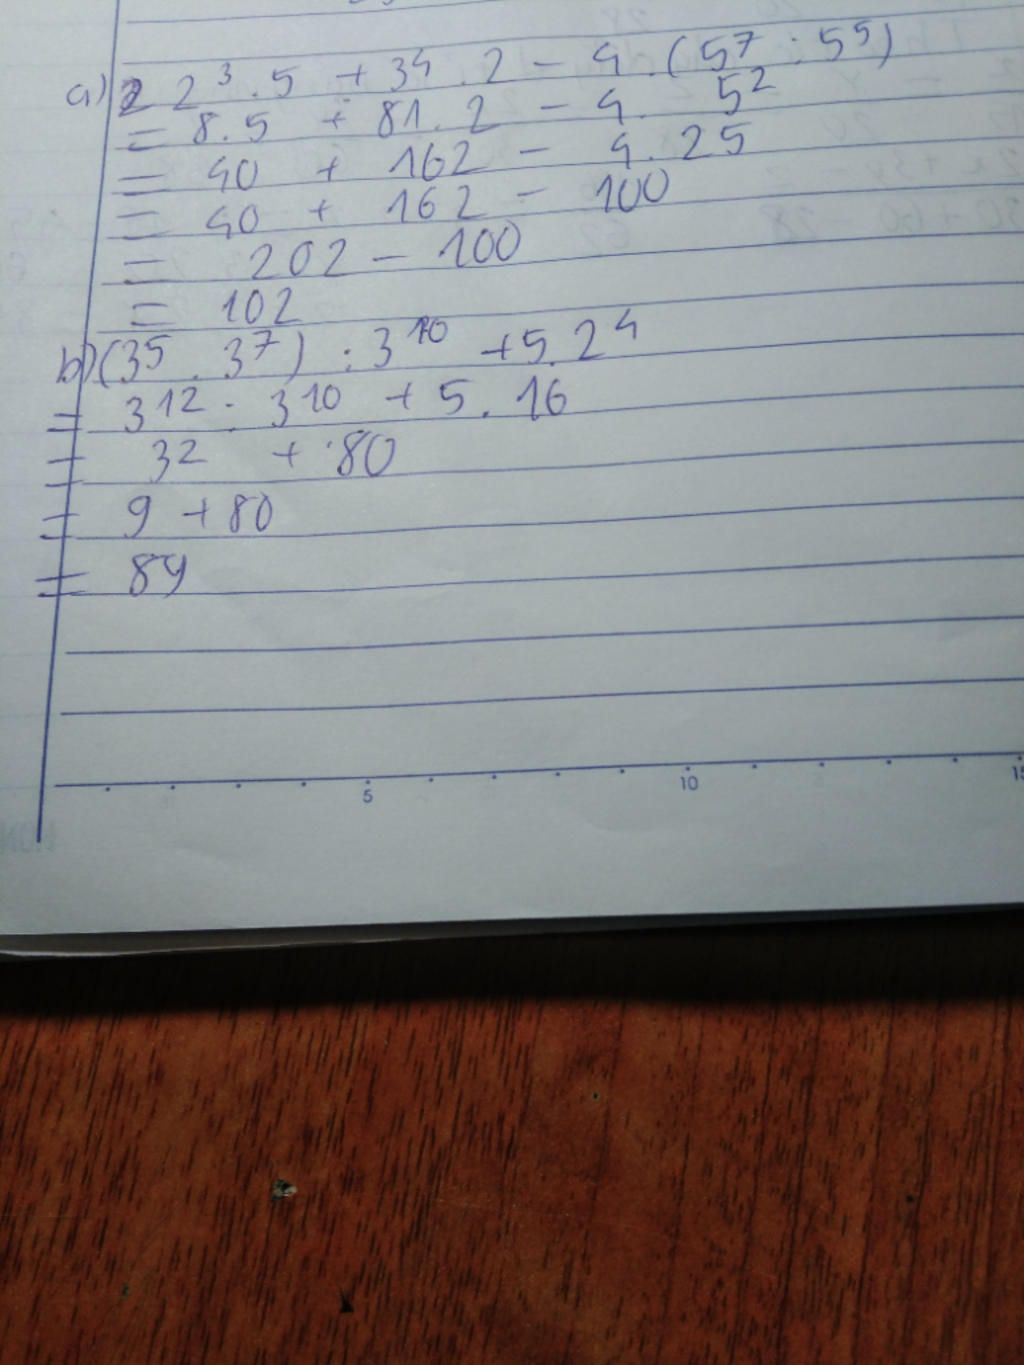 a) 2 2³.5 + 3⁴.2 - 4.(5⁷:5⁵)
= 8.5 + 81.2 - 4. 5²
= 40 + 162 - 4.25
= 40 + 162 - 100
= 202 - 100
= 102
b) (3⁵.3⁷):3¹⁰ +5.2⁴
= 3¹²:3¹⁰ + 5.16
= 3² + 80
= 9 + 80
= 89
5 10 15